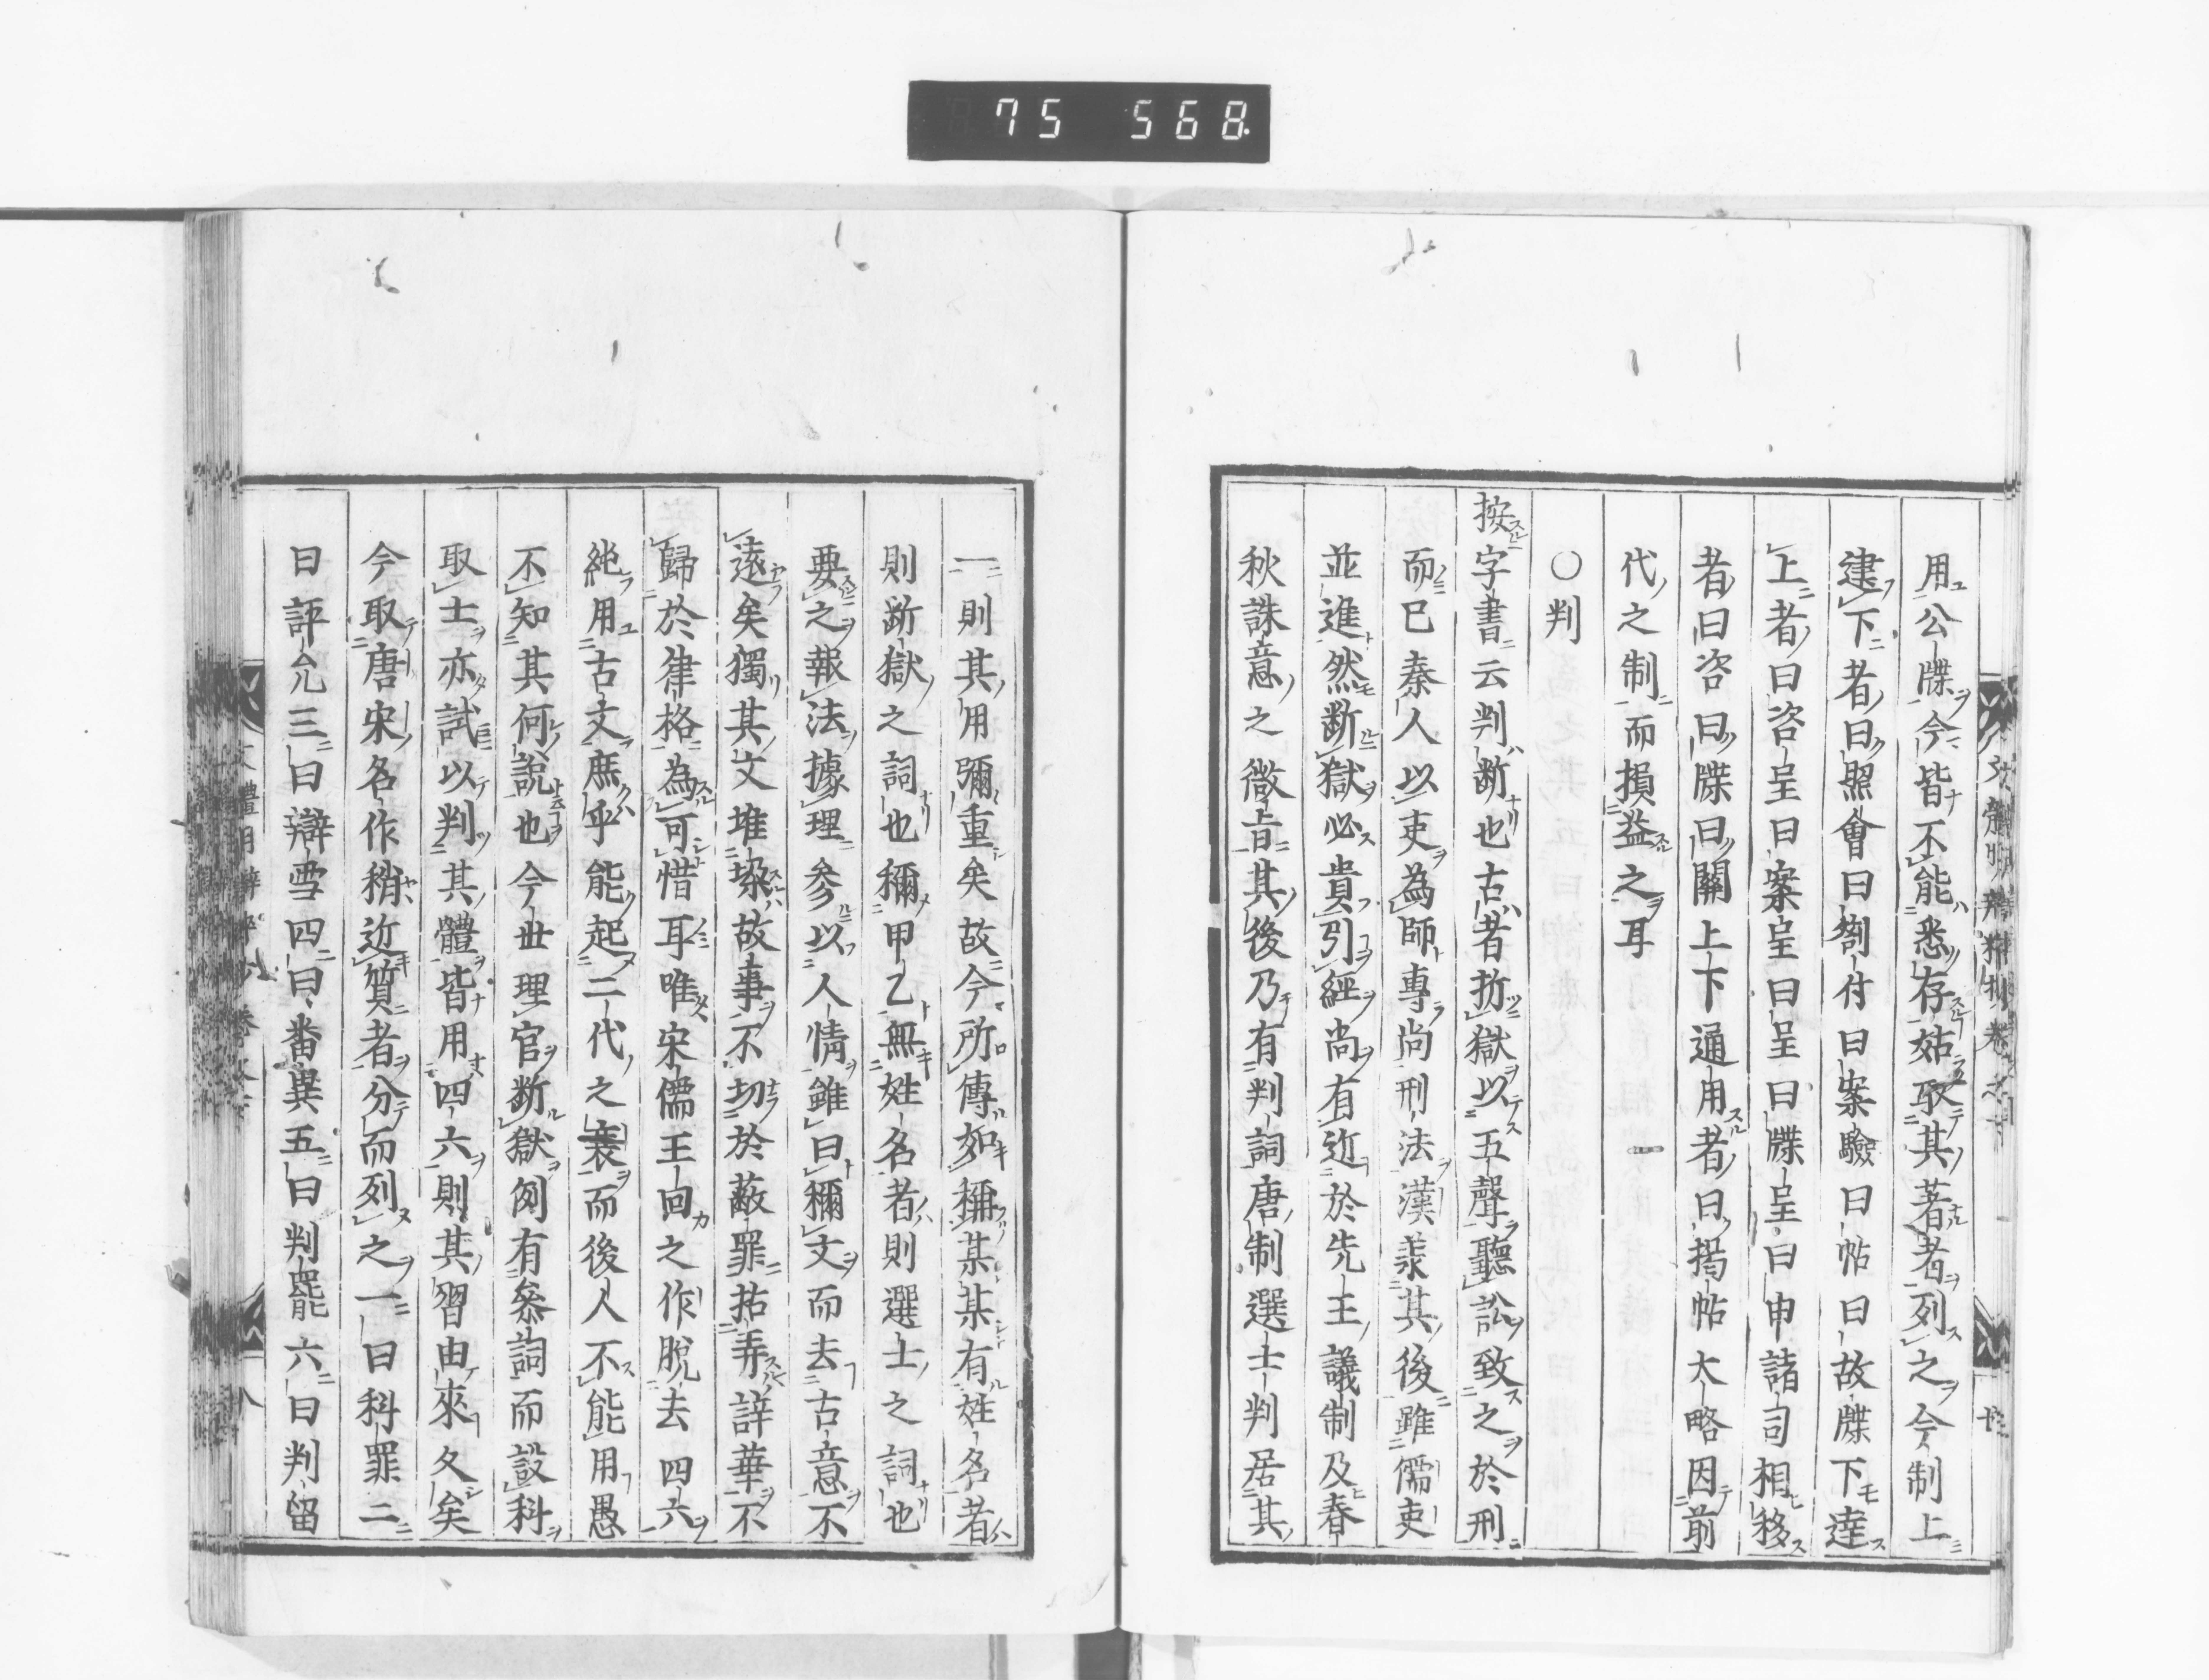 75 568.
用公牒今皆不能悉存姑取其著者列之今制上
逮下者曰照會曰劄付曰案驗曰帖曰故牒下達
上者曰咨呈曰案呈曰呈曰牒呈曰申諸司相移
者曰咨曰牒曰關上下通用者曰揭帖大略因前
代之制而損益之耳
○判
按字書云判斷也古者折獄以五聲聽訟致之於刑
而已秦人以吏為師專尚刑法漢羕其後雖儒吏
並進然斷獄必貴引經尚有近於先王議制及春
秋誅意之微旨其後乃有判詞唐制選士判居其
一則其用彌重矣故今所傳如稱某某有姓名者
則斷獄之詞也稱甲乙無姓名者則選士之詞也
要之報法據理參以人情雖曰稱文而去古意不
遠矣獨其文堆垛故事不切於蔽罪拈弄辭華不
歸於律格為可惜耳唯宋儒王回之作脫去四六
純用古文庶乎能起二代之衰而後人不能用愚
不知其何說也今世理官斷獄例有參詞而設科
取士亦試以判其體皆用四六則其習由來久矣
今取唐宋名作稍近質者分而列之一曰科罪二
曰評允三曰辯雪四曰番異五曰判罷六曰判留